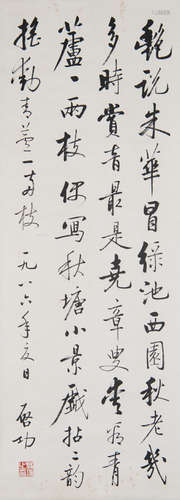 艷說朱華冒綠池西園秋老幾
多時賞音最是堯章叟青
蘆一兩枝偶寫秋塘小景戲拈二韻
搖動青蘆一兩枝 一九八六年夏日 啟功